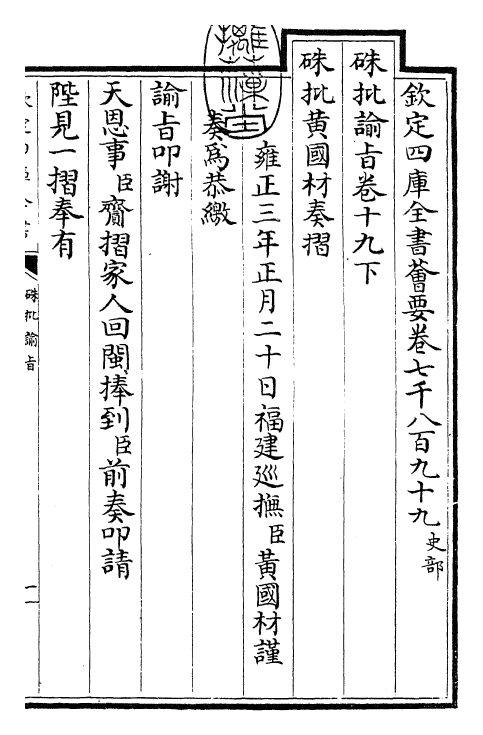 欽定四庫全書薈要卷七千八百九十九 史部
硃批諭旨卷十九下
硃批黃國材奏摺
雍正三年正月二十日福建廵撫臣黃國材謹
奏爲恭繳
諭旨叩謝
天恩事臣齎摺家人回閩捧到臣前奏叩請
陛見一摺奉有
硃批諭旨
一